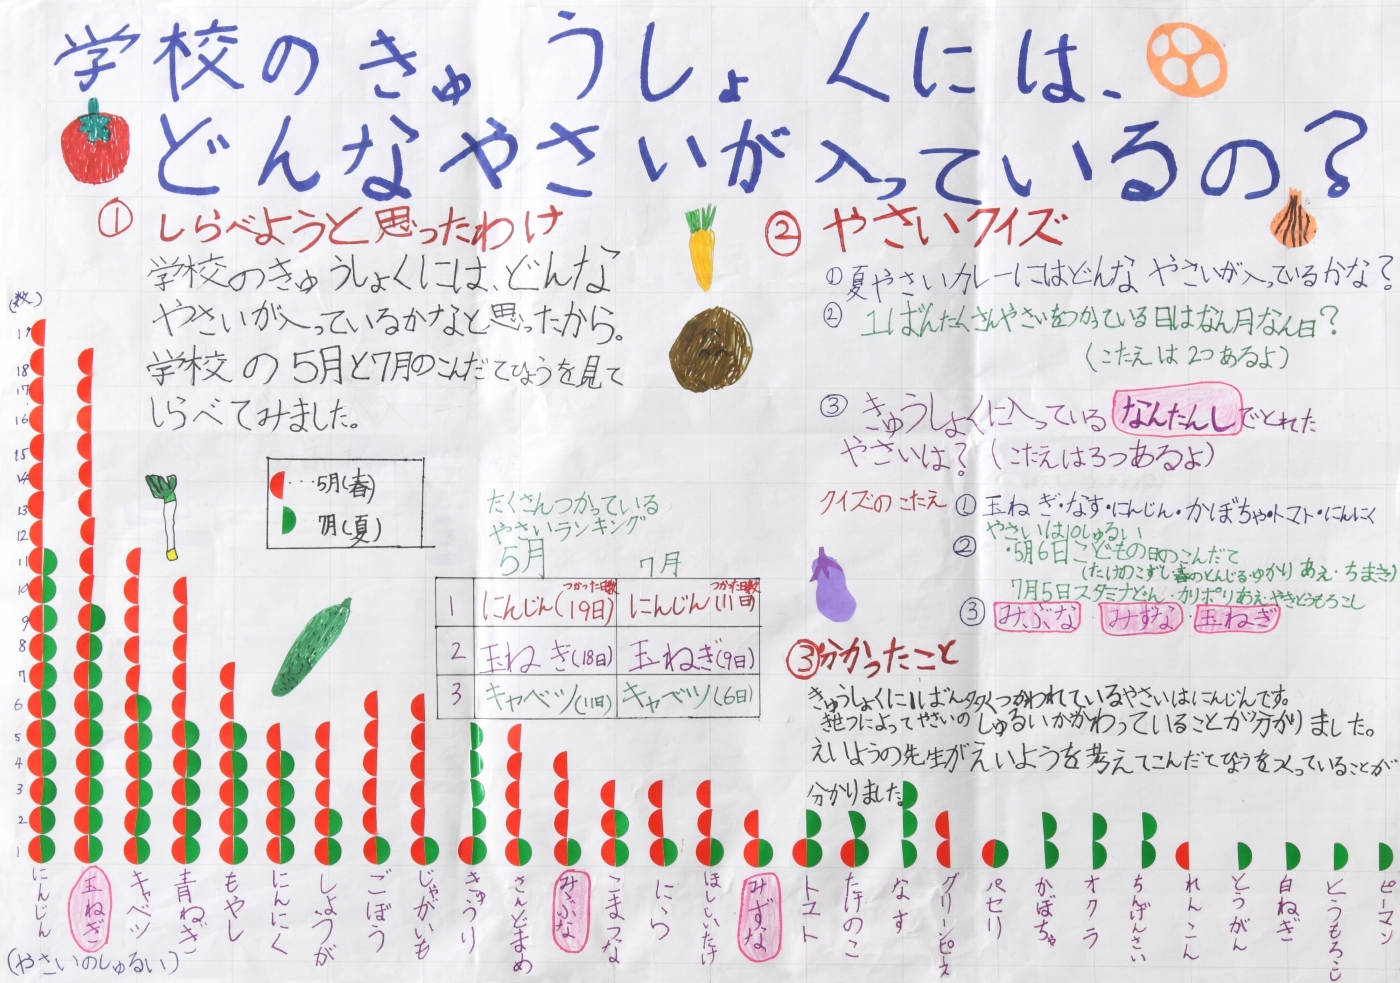 学校のきゅうしょくには、
どんなやさいが入っているの？
① しらべようと思ったわけ
学校のきゅうしょくには、どんな
やさいが入っているかなと思ったから。
学校の5月と7月のこんだてひょうを見て
しらべてみました。
…5月(春)
7月(夏)
たくさんつかっている
やさいランキング
5月 7月
つかった日数 つかった日数
1 にんじん(19日) にんじん(11日)
2 玉ねぎ(18日) 玉ねぎ(9日)
3 キャベツ(11日) キャベツ(6日)
② やさいクイズ
① 夏やさいカレーにはどんなやさいが入っているかな？
② 1ばんたくさんやさいをつかっている日はなん月なん日？
(こたえは2つあるよ)
③ きゅうしょくに入っているなんたんしでとれた
やさいは？(こたえは3つあるよ)
クイズのこたえ
① 玉ねぎ・なす・にんじん・かぼちゃ・トマト・にんにく
やさいは10しゅるい
② ・5月6日こどもの日のこんだて
(たけのこずし・春のとんじる・ゆかりあえ・ちまき)
7月5日スタミナどん・カリポリあえ・やきとうもろこし
③ みぶな・みずな・玉ねぎ
③ 分かったこと
きゅうしょくに1ばん多くつかわれているやさいはにんじんです。
きせつによってやさいのしゅるいがかわっていることが分かりました。
えいようの先生がえいようを考えてこんだてひょうをつくっていることが
分かりました。
(数)
19
18
17
16
15
14
13
12
11
10
9
8
7
6
5
4
3
2
1
にんじん
玉ねぎ
キャベツ
青ねぎ
もやし
にんにく
しょうが
ごぼう
じゃがいも
きゅうり
さんどまめ
みぶな
こまつな
にら
ほししいたけ
みずな
トマト
たけのこ
なす
グリーンピース
パセリ
かぼちゃ
オクラ
ちんげんさい
れんこん
とうがん
白ねぎ
とうもろこし
ピーマン
(やさいのしゅるい)